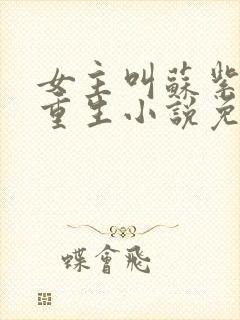 女主叫蘇紫
重生小說免
蝶會飛